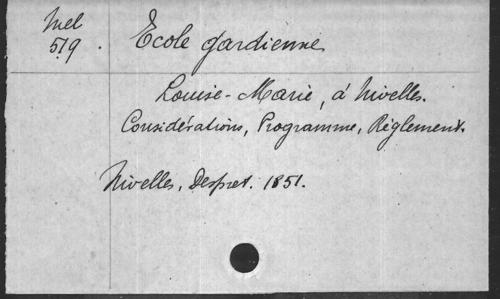 Mel
519.
Ecole gardienne
Louise-Marie, à Nivelles.
Considérations, Programme, Règlement.
Nivelles, Despret. 1851.